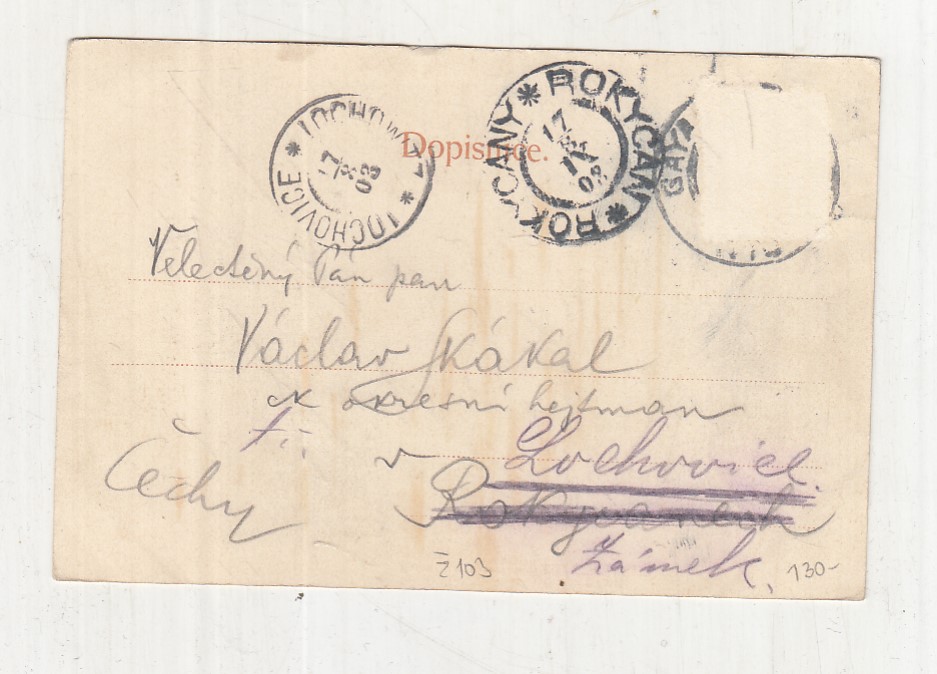 LOCHOWITZ * LOCHOVICE *
17 8 03
ROKYCAN * ROKYCANY *
17
03
Dopisnice.
Velectěný Pán pan
Václav Skákal
ck okresní hejtman
Lochovice.
v Rokycanech
Čechy
Zámek,
Ž103
130-